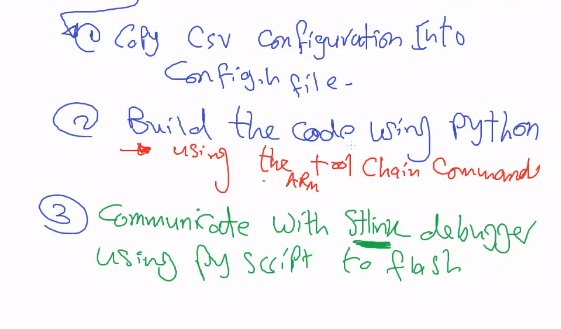 ① Copy Csv configuration Into
Config.h file.
② Build the code using python
→ using the ARM tool Chain Commands
③ Communicate with Stlink debugger
using py script to flash